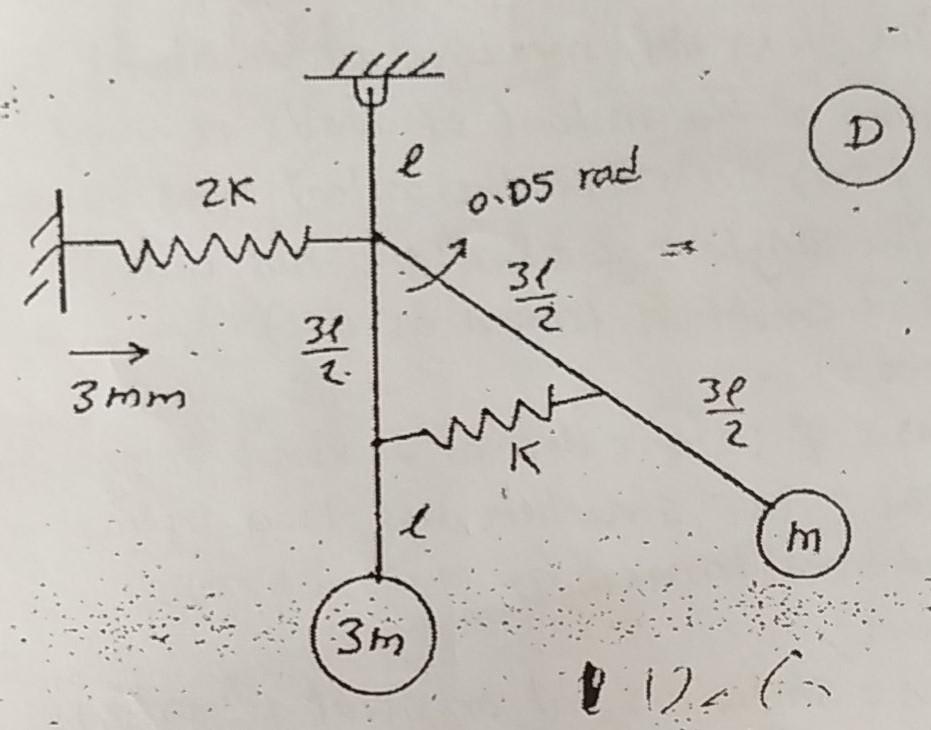 D
l
0.05 rad
2K
=
3l/2
3l/2
3mm
3l/2
K
l
m
3m